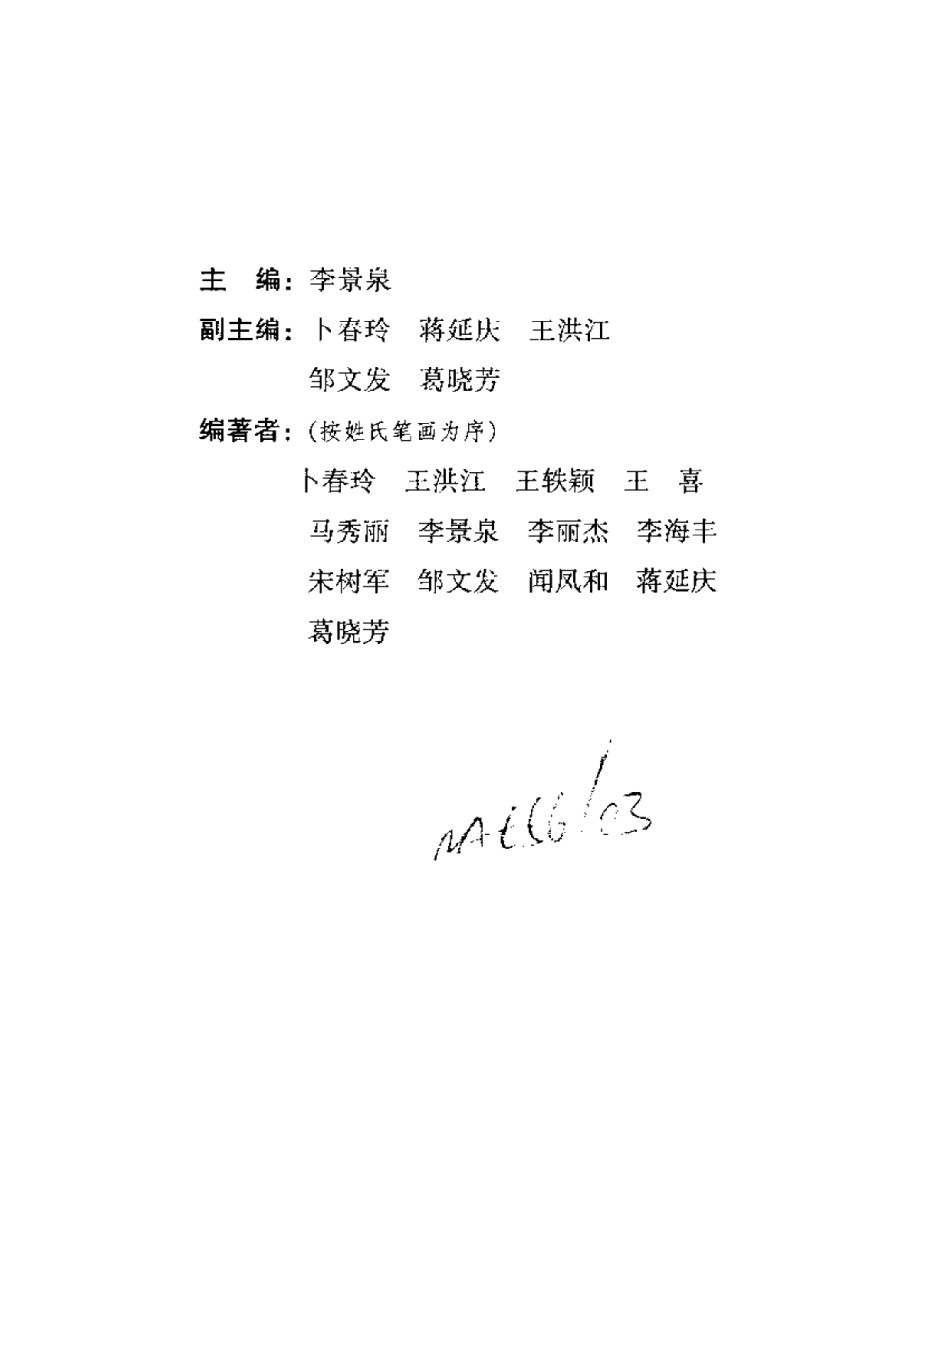 主　编：李景泉
副主编：卜春玲　蒋延庆　王洪江
邹文发　葛晓芳
编著者：(按姓氏笔画为序)
卜春玲　王洪江　王轶颖　王　喜
马秀丽　李景泉　李丽杰　李海丰
宋树军　邹文发　闻凤和　蒋延庆
葛晓芳